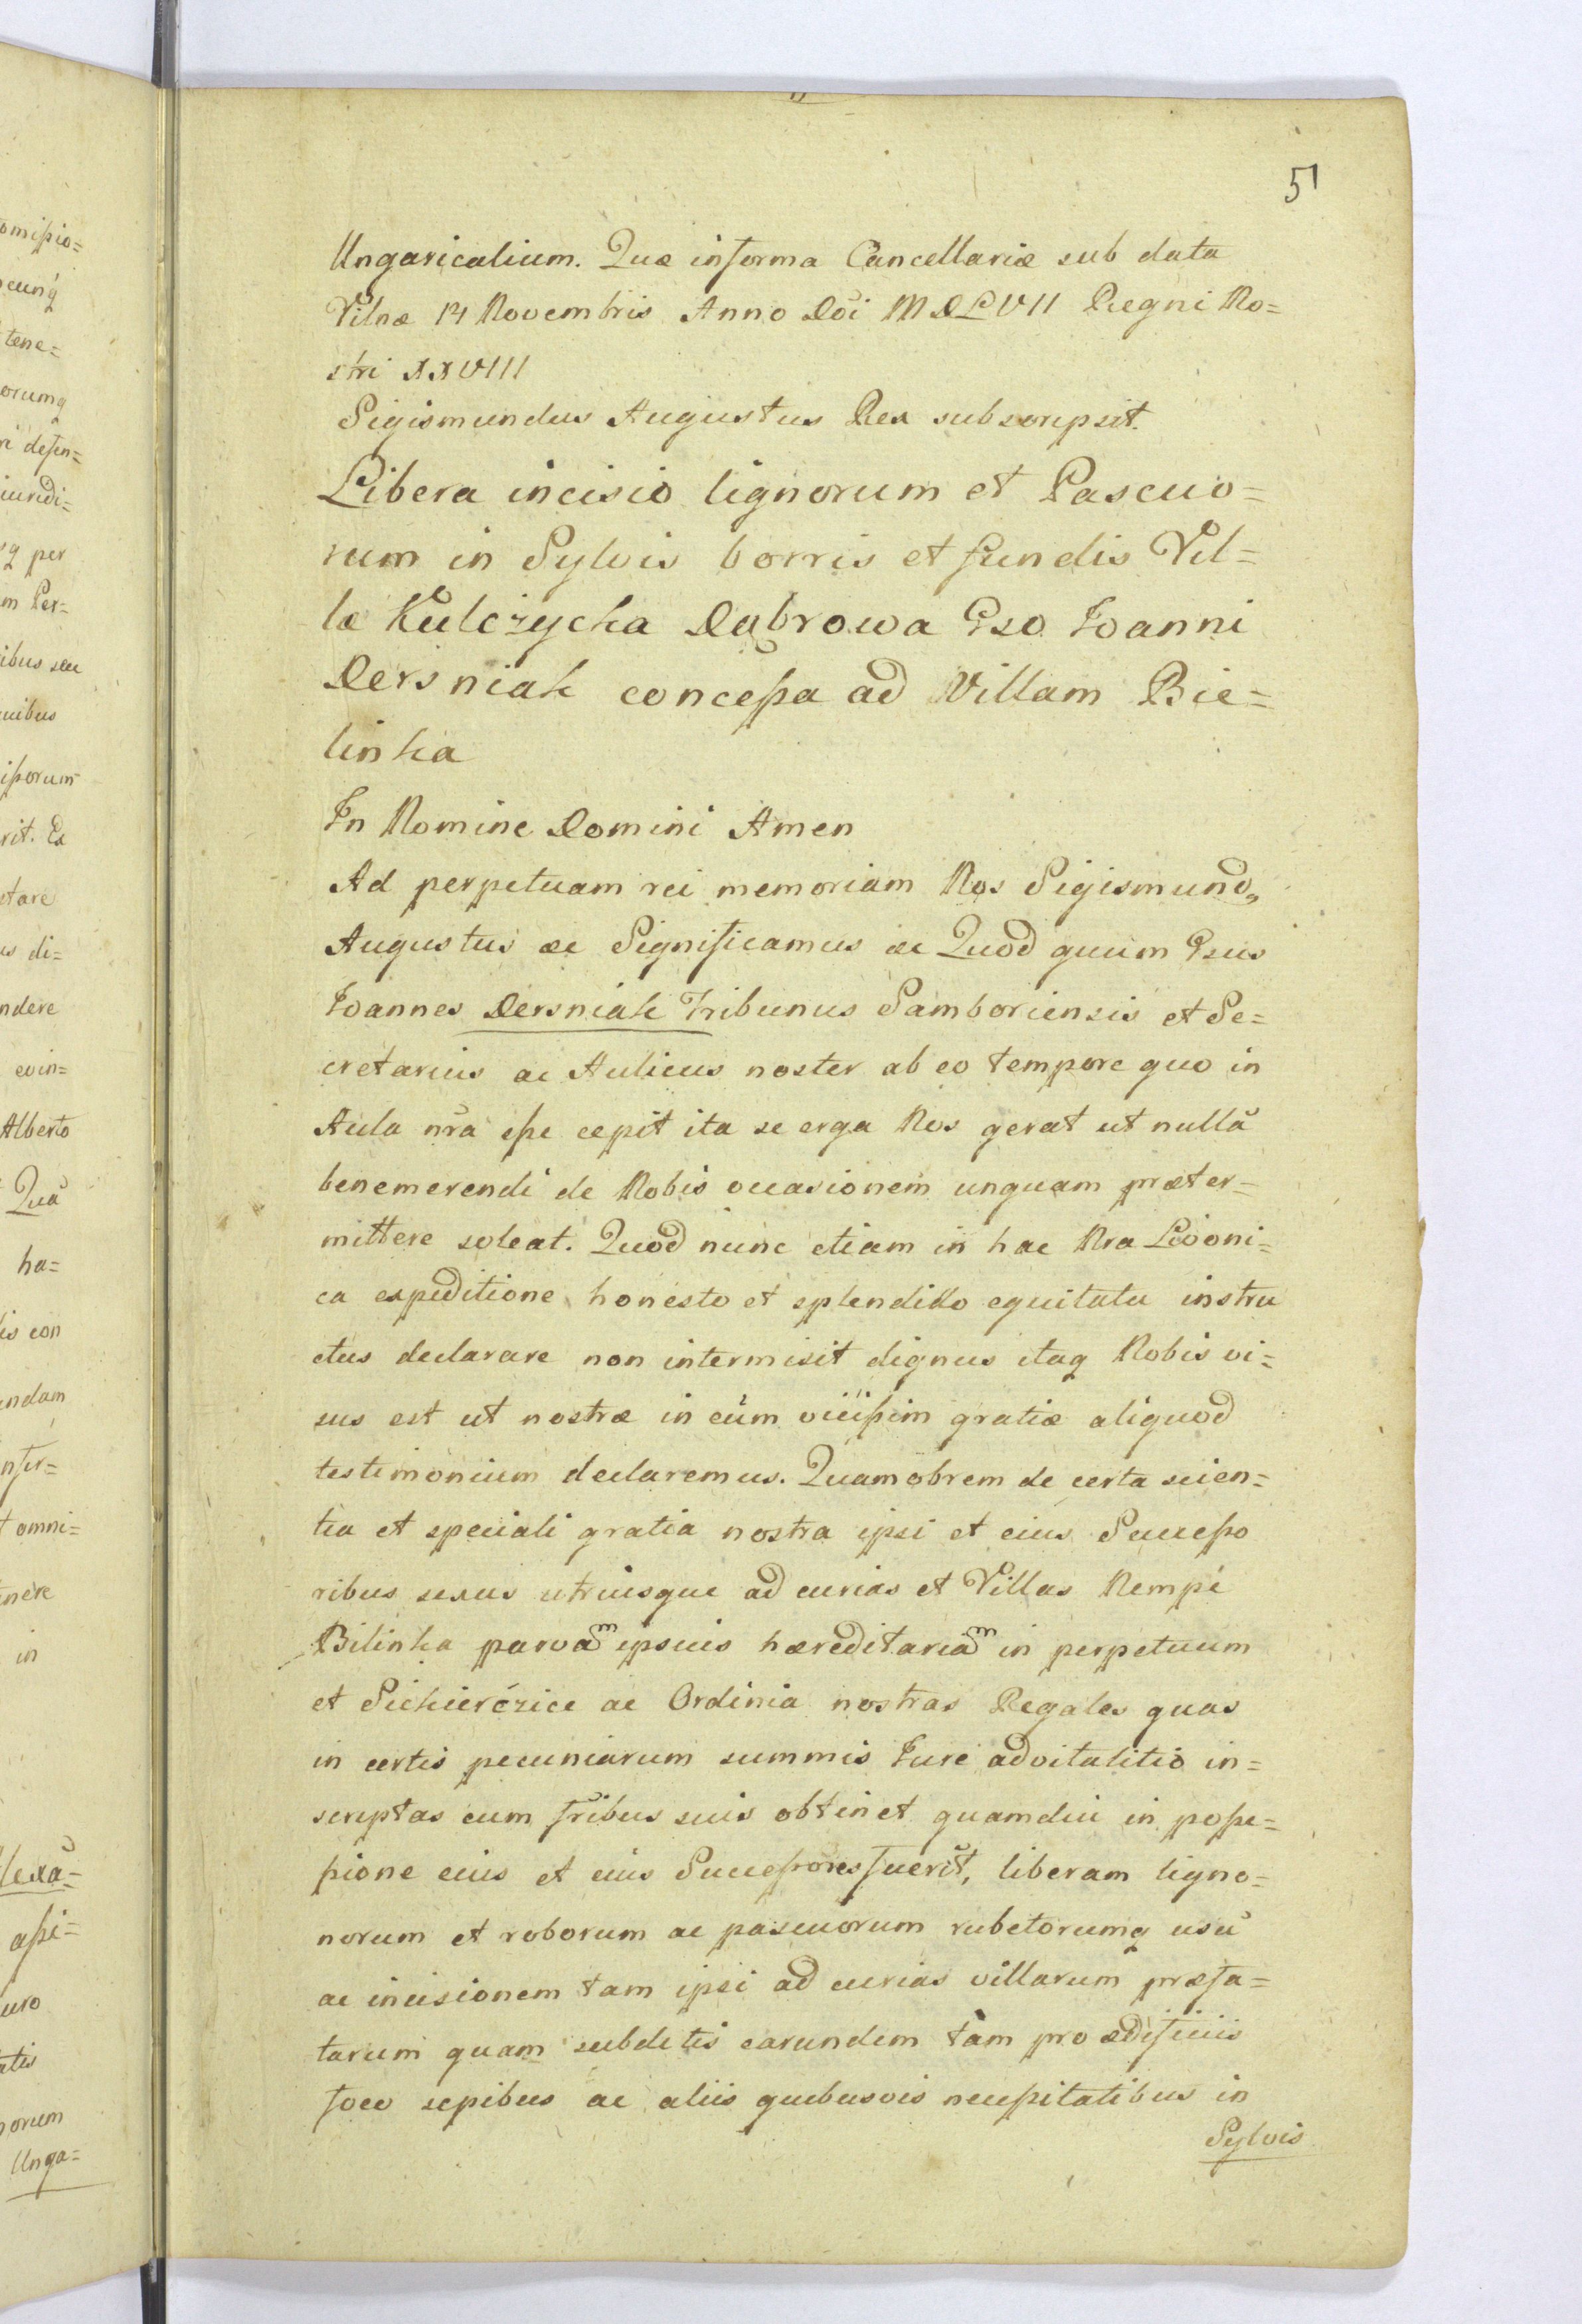 51
Ungaricalium. Quæ informa Cancellariæ sub data
Vilnæ 14 Novembris Anno Dñi MDLVII Regni No=
stri XXVIII
Sigismundus Augustus Rex subscripsit.
Libera incisio lignorum et Pascuo=
rum in Sylvis borris et fundis Vil=
læ Kulczycka Dąbrowa Gso Ioanni
Dersniak concessa ad Villam Bie=
linka
In Nomine Domini Amen
Ad perpetuam rei memoriam Nos Sigismund9
Augustus &c Significamus &c Quod quum Gsus
Ioannes Dersniak Tribunus Samboriensis et Se=
cretarius ac Aulicus noster ab eo tempore quo in
Aula nra esse cepit ita se erga Nos gerat ut nullã
benemerendi de Nobis occasionem unquam præter=
mittere soleat. Quod nunc etiam in hac Nra Livoni=
ca expeditione honesto et splendido equitatu instru
ctus declarare non intermisit dignus itaq Nobis vi=
sus est ut nostræ in eum vicissim gratiæ aliquod
testimonium declaremus. Quamobrem de certa scien=
tia et speciali gratia nostra ipsi et eius Successo
ribus sexus utriusque ad curias et Villas Nempe
Bilinka parvam ipsius hæreditariam in perpetuum
et Siekierczice ac Ordinia nostras Regales quas
in certis pecuniarum summis Iure advitalitio in=
scriptas cum fribus suis obtinet quamdiu in posse=
ssione eius et eius Successores fuerĩt, liberam ligno=
norum et roborum ac pascuorum rubetorumq usũ
ac incisionem tam ipsi ad curias villarum præfa=
tarum quam subditis earundem tam pro ædificiis
foco sepibus ac aliis quibusvis necessitatibus in
Sylvis
omissio=
cunq
tene=
orumq
ri defen=
iuridi=
sq per
m Per=
ibus seu
uibus
issorum
rit. Ex
ctare
us di=
ndere
evin=
Alberto
Quã
ha=
is con
undam
nfer=
t omni=
nere
in
lexã=
assi=
uro
atis
norum
Unga=